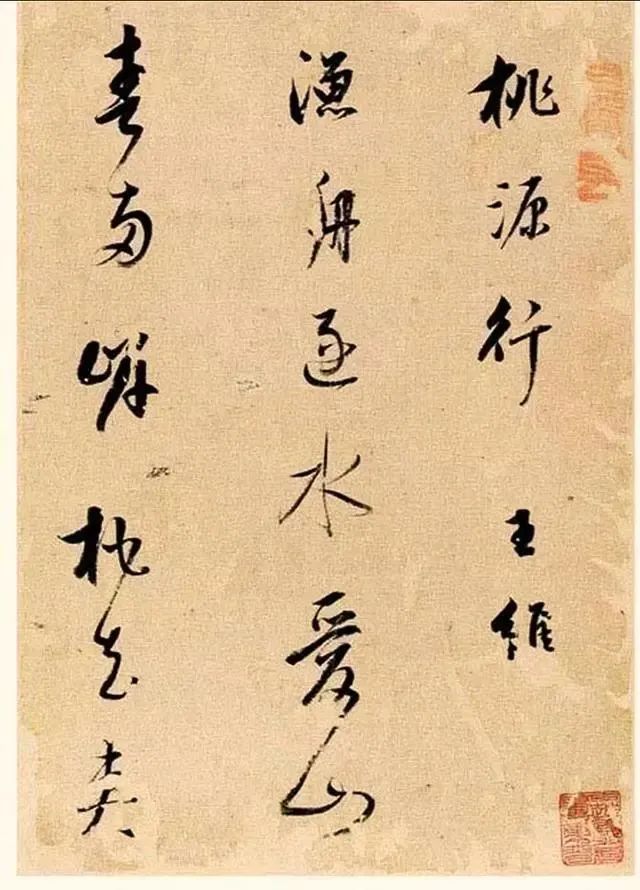 桃源行 王維
漁舟逐水愛山
春兩岸桃花夾